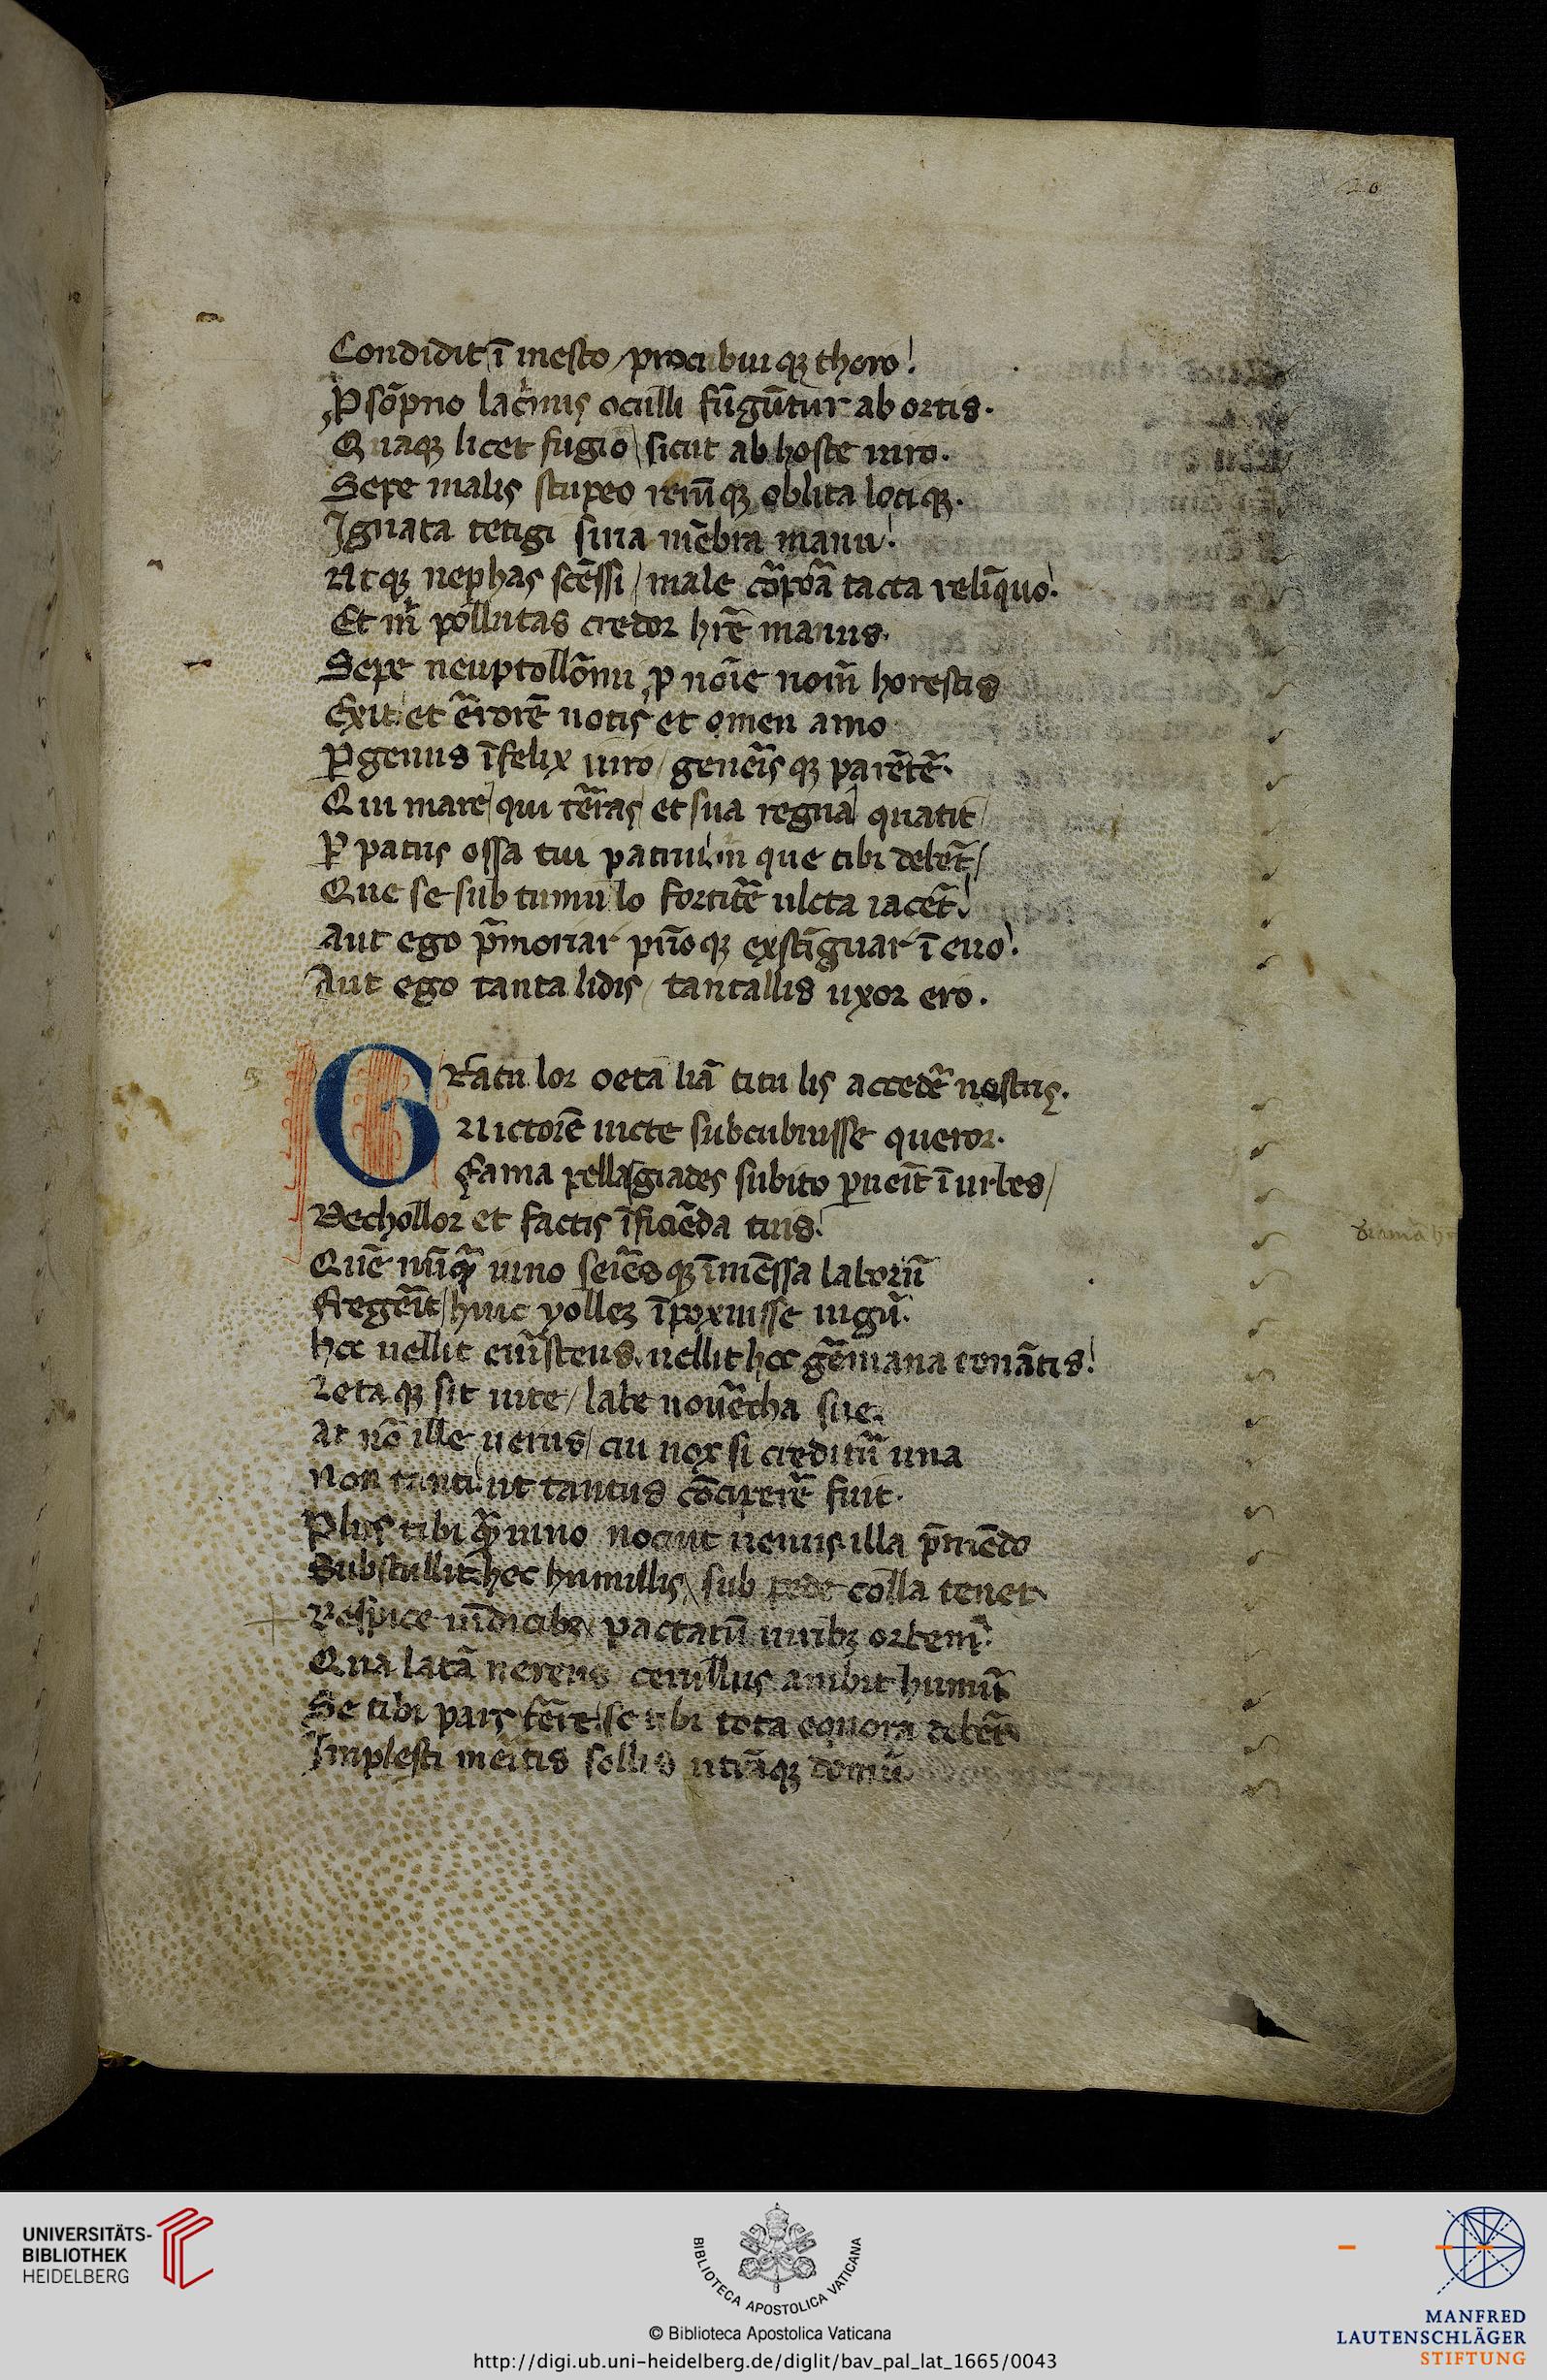 20
Condidit ī mesto procubui qꝫ thoro
P sōpno lac̄mis oculli fūgūtur ab ortis.
Quaqꝫ licet fugio sicut ab hoste uiro.
Sepe malis stupeo rerūqꝫ oblita lociqꝫ.
Ignara tetigi siria mēbra manu.
Atqꝫ nephas sc̄essi / male cōrpōa tacta reliq̄uo.
Et m̄ pollutas credor hr̄e manus.
Sepe neuptollōmi p noīe nom̄ horestis
Exit et ērorē uotis et omen amo
Ꝑ genus īfelix iuro / geneīsqꝫ parētē.
Qui mare / qui tēras / et sua regna quatit /
Ꝑ patris ossa tui patrui m̄ que tibi debēt /
Que se sub tumulo fortitē ulcta iacēt.
Aut ego p̄moriar pīoqꝫ exstīguar ī euo.
Aut ego tantalidis / tantallis uxor ero.
Gratulor oetaliā titulis accedēr nostris.
Uictorē uicte subcubuisse queror.
Fama pellasgiades subito ꝑueīt ī urbes /
Dechollor et factis īficiēda tuis.
Quē nūqꝫ iuno seīesqꝫ īmēssa laborū
Fregeīt / huic yollez īpoxuisse iugū.
hoc uellit eur̄steus uellit hoc ḡemana tonātis.
Letaqꝫ sit uite / labe nouērcha sue.
At nō ille uenus / cui nox si creditū una
Non tanti ut tantus cōcipeīē fuit.
Plus tibi qꝫ iuno nocuit uenus illa p̄mēdo
Substullit hec humillis sub pede colla tenet
Respice uīdicibꝫ pactatū uiribꝫ orbem.
Qua latā nereus cerullus ambit humū
Se tibi pars tēre se tibi tota equora debēt
Implesti meītis sollis utrāqꝫ domū.
UNIVERSITÄTS-
BIBLIOTHEK
HEIDELBERG
BIBLIOTECA APOSTOLICA VATICANA
© Biblioteca Apostolica Vaticana
http://digi.ub.uni-heidelberg.de/diglit/bav_pal_lat_1665/0043
MANFRED
LAUTENSCHLÄGER
STIFTUNG